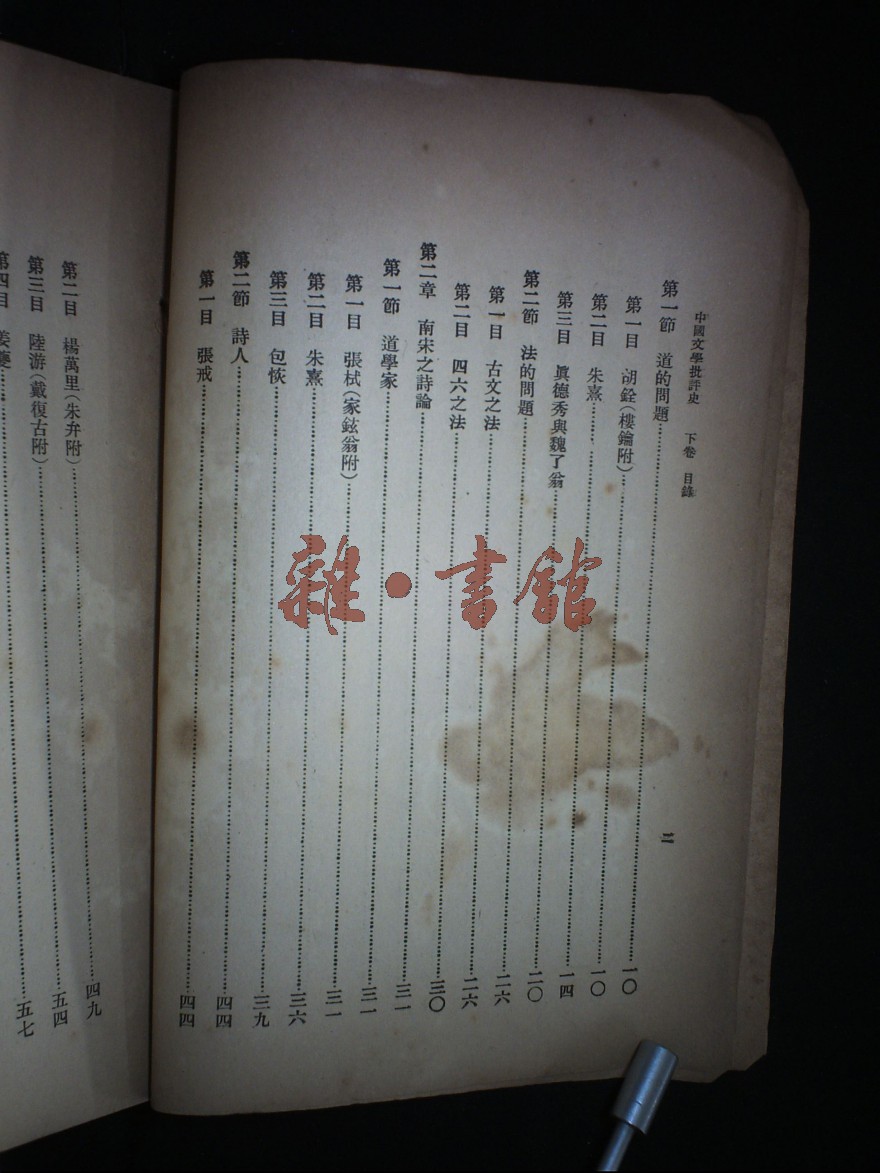 中國文學批評史 下卷 目錄
二
第一節 道的問題……一〇
第一目 胡銓(樓鑰附)……一〇
第二目 朱熹……一四
第三目 眞德秀與魏了翁……二〇
第二節 法的問題……二六
第一目 古文之法……二六
第二目 四六之法……三〇
第二章 南宋之詩論……三一
第一節 道學家……三一
第一目 張栻(家鉉翁附)……三一
第二目 朱熹……三六
第三目 包恢……三九
第二節 詩人……四四
第一目 張戒……四四
第二目 楊萬里(朱弁附)……四九
第三目 陸游(戴復古附)……五四
第四目 姜夔……五七
雜·書館